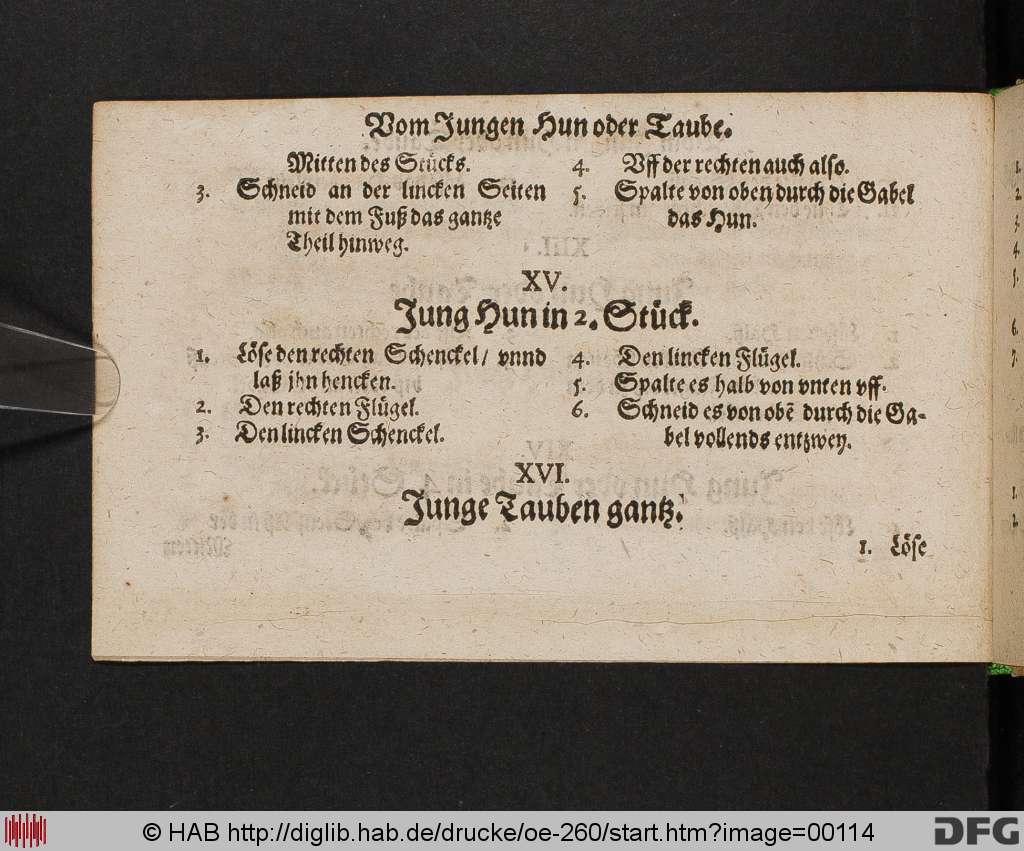 Vom Jungen Hun oder Taube.
Mitten des Stücks.
3. Schneid an der lincken Seiten
mit dem Fuß das gantze
Theil hinweg.
4. Vff der rechten auch also.
5. Spalte von oben durch die Gabel
das Hun.
XV.
Jung Hun in 2. Stück.
1. Löse den rechten Schenckel / vnnd
laß jhn hencken.
2. Den rechten Flügel.
3. Den lincken Schenckel.
4. Den lincken Flügel.
5. Spalte es halb von vnten vff.
6. Schneid es von obẽ durch die Ga-
bel vollends entzwey.
XVI.
Junge Tauben gantz.
1. Löse
© HAB http://diglib.hab.de/drucke/oe-260/start.htm?image=00114
DFG